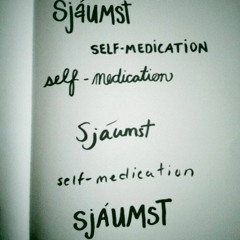 Sjáumst
SELF-MEDICATION
self-medication
Sjáumst
self-medication
SJÁUMST